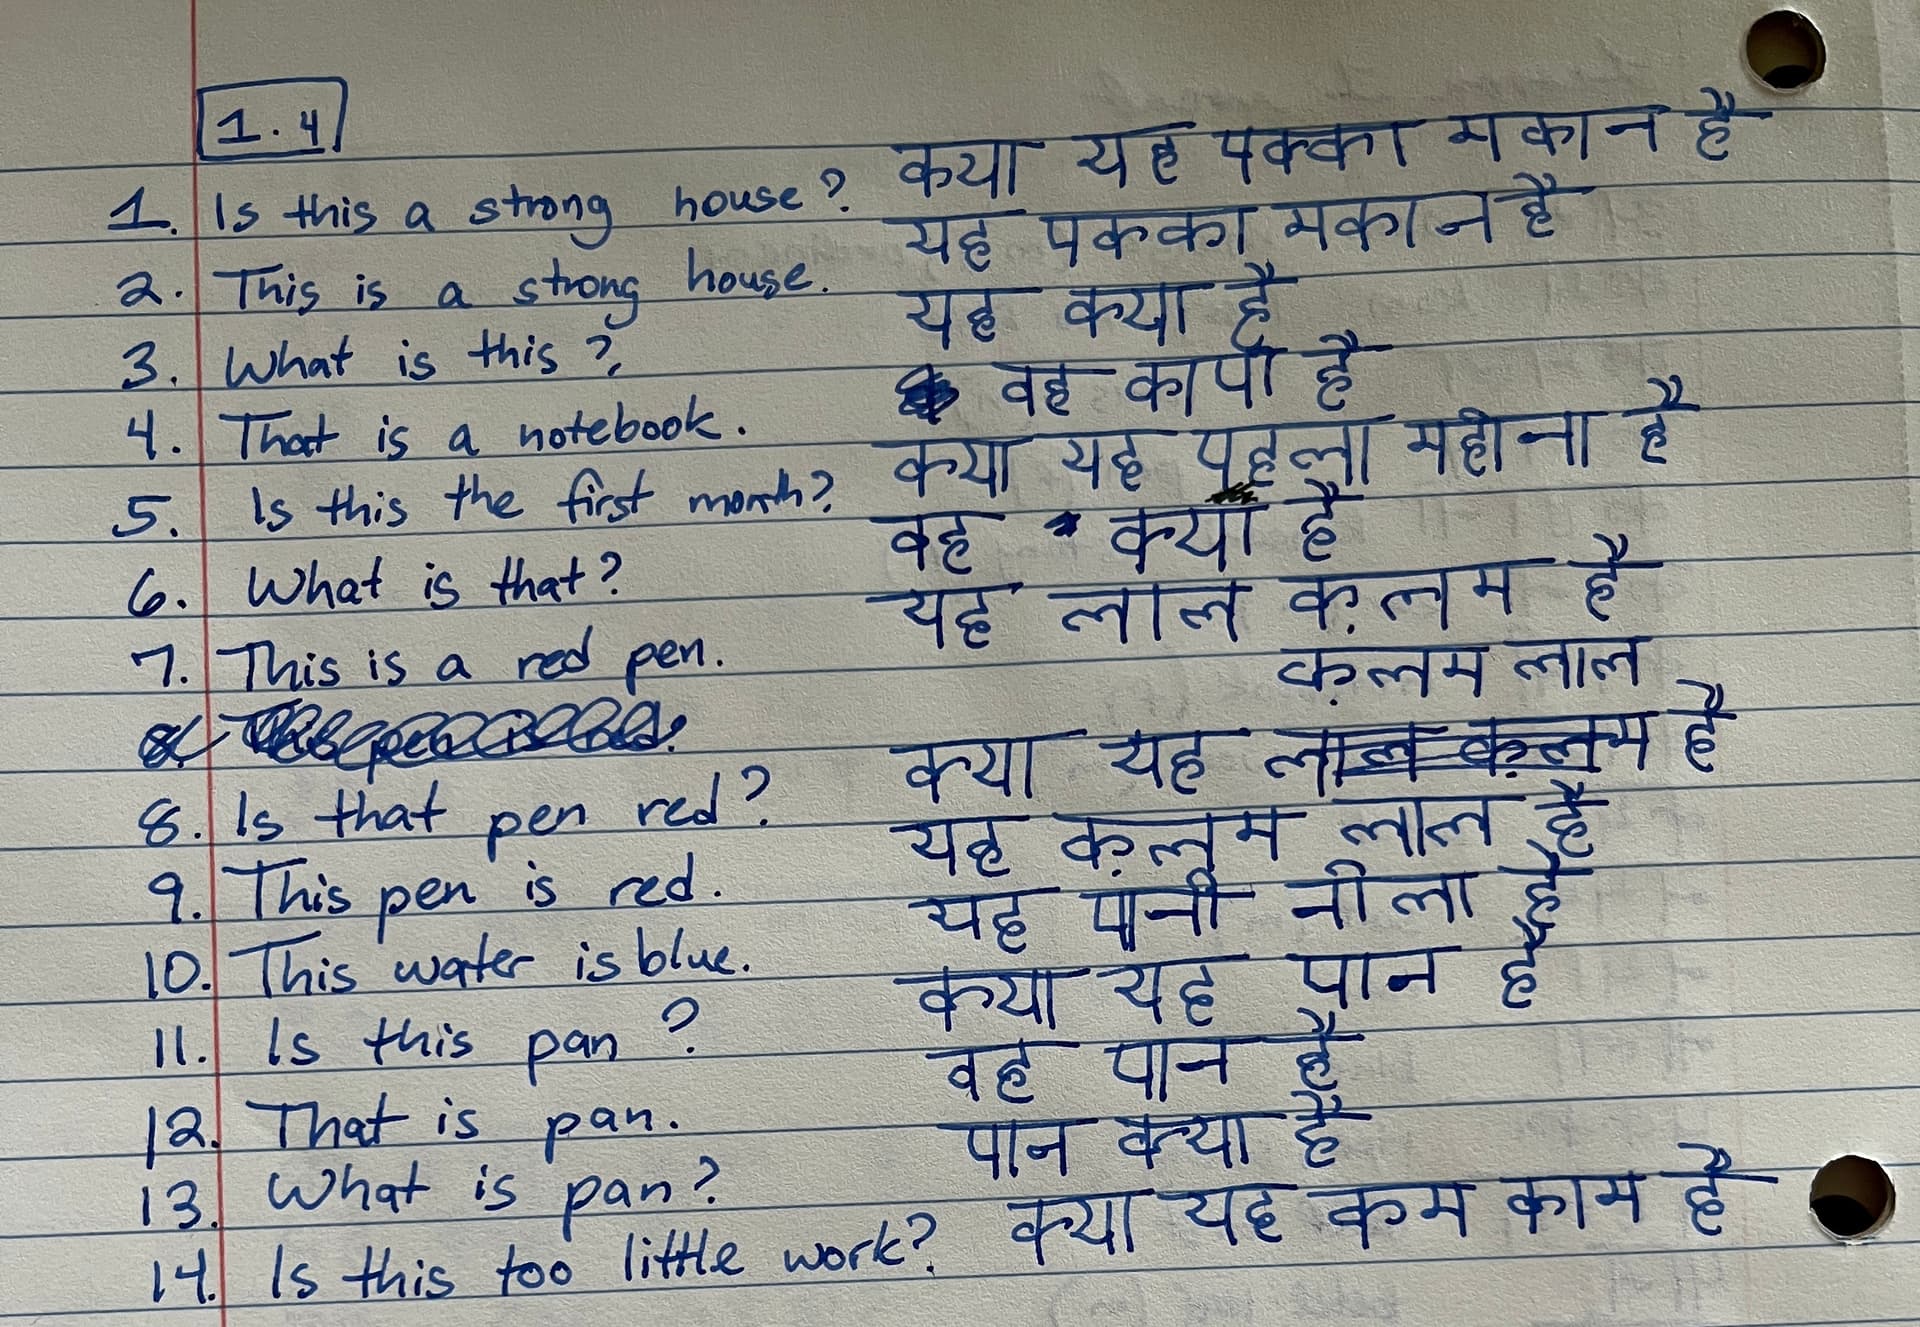 1.4
1. Is this a strong house? क्या यह पक्का मकान है
2. This is a strong house. यह पक्का मकान है
3. What is this? यह क्या है
4. That is a notebook. वह कापी है
5. Is this the first month? क्या यह पहला महीना है
6. What is that? वह क्या है
7. This is a red pen. यह लाल क़लम है
क़लम लाल
8. Is that pen red? क्या यह लाल क़लम है
9. This pen is red. यह क़लम लाल है
10. This water is blue. यह पानी नीला है
11. Is this pan? क्या यह पान है
12. That is pan. वह पान है
13. What is pan? पान क्या है
14. Is this too little work? क्या यह कम काम है